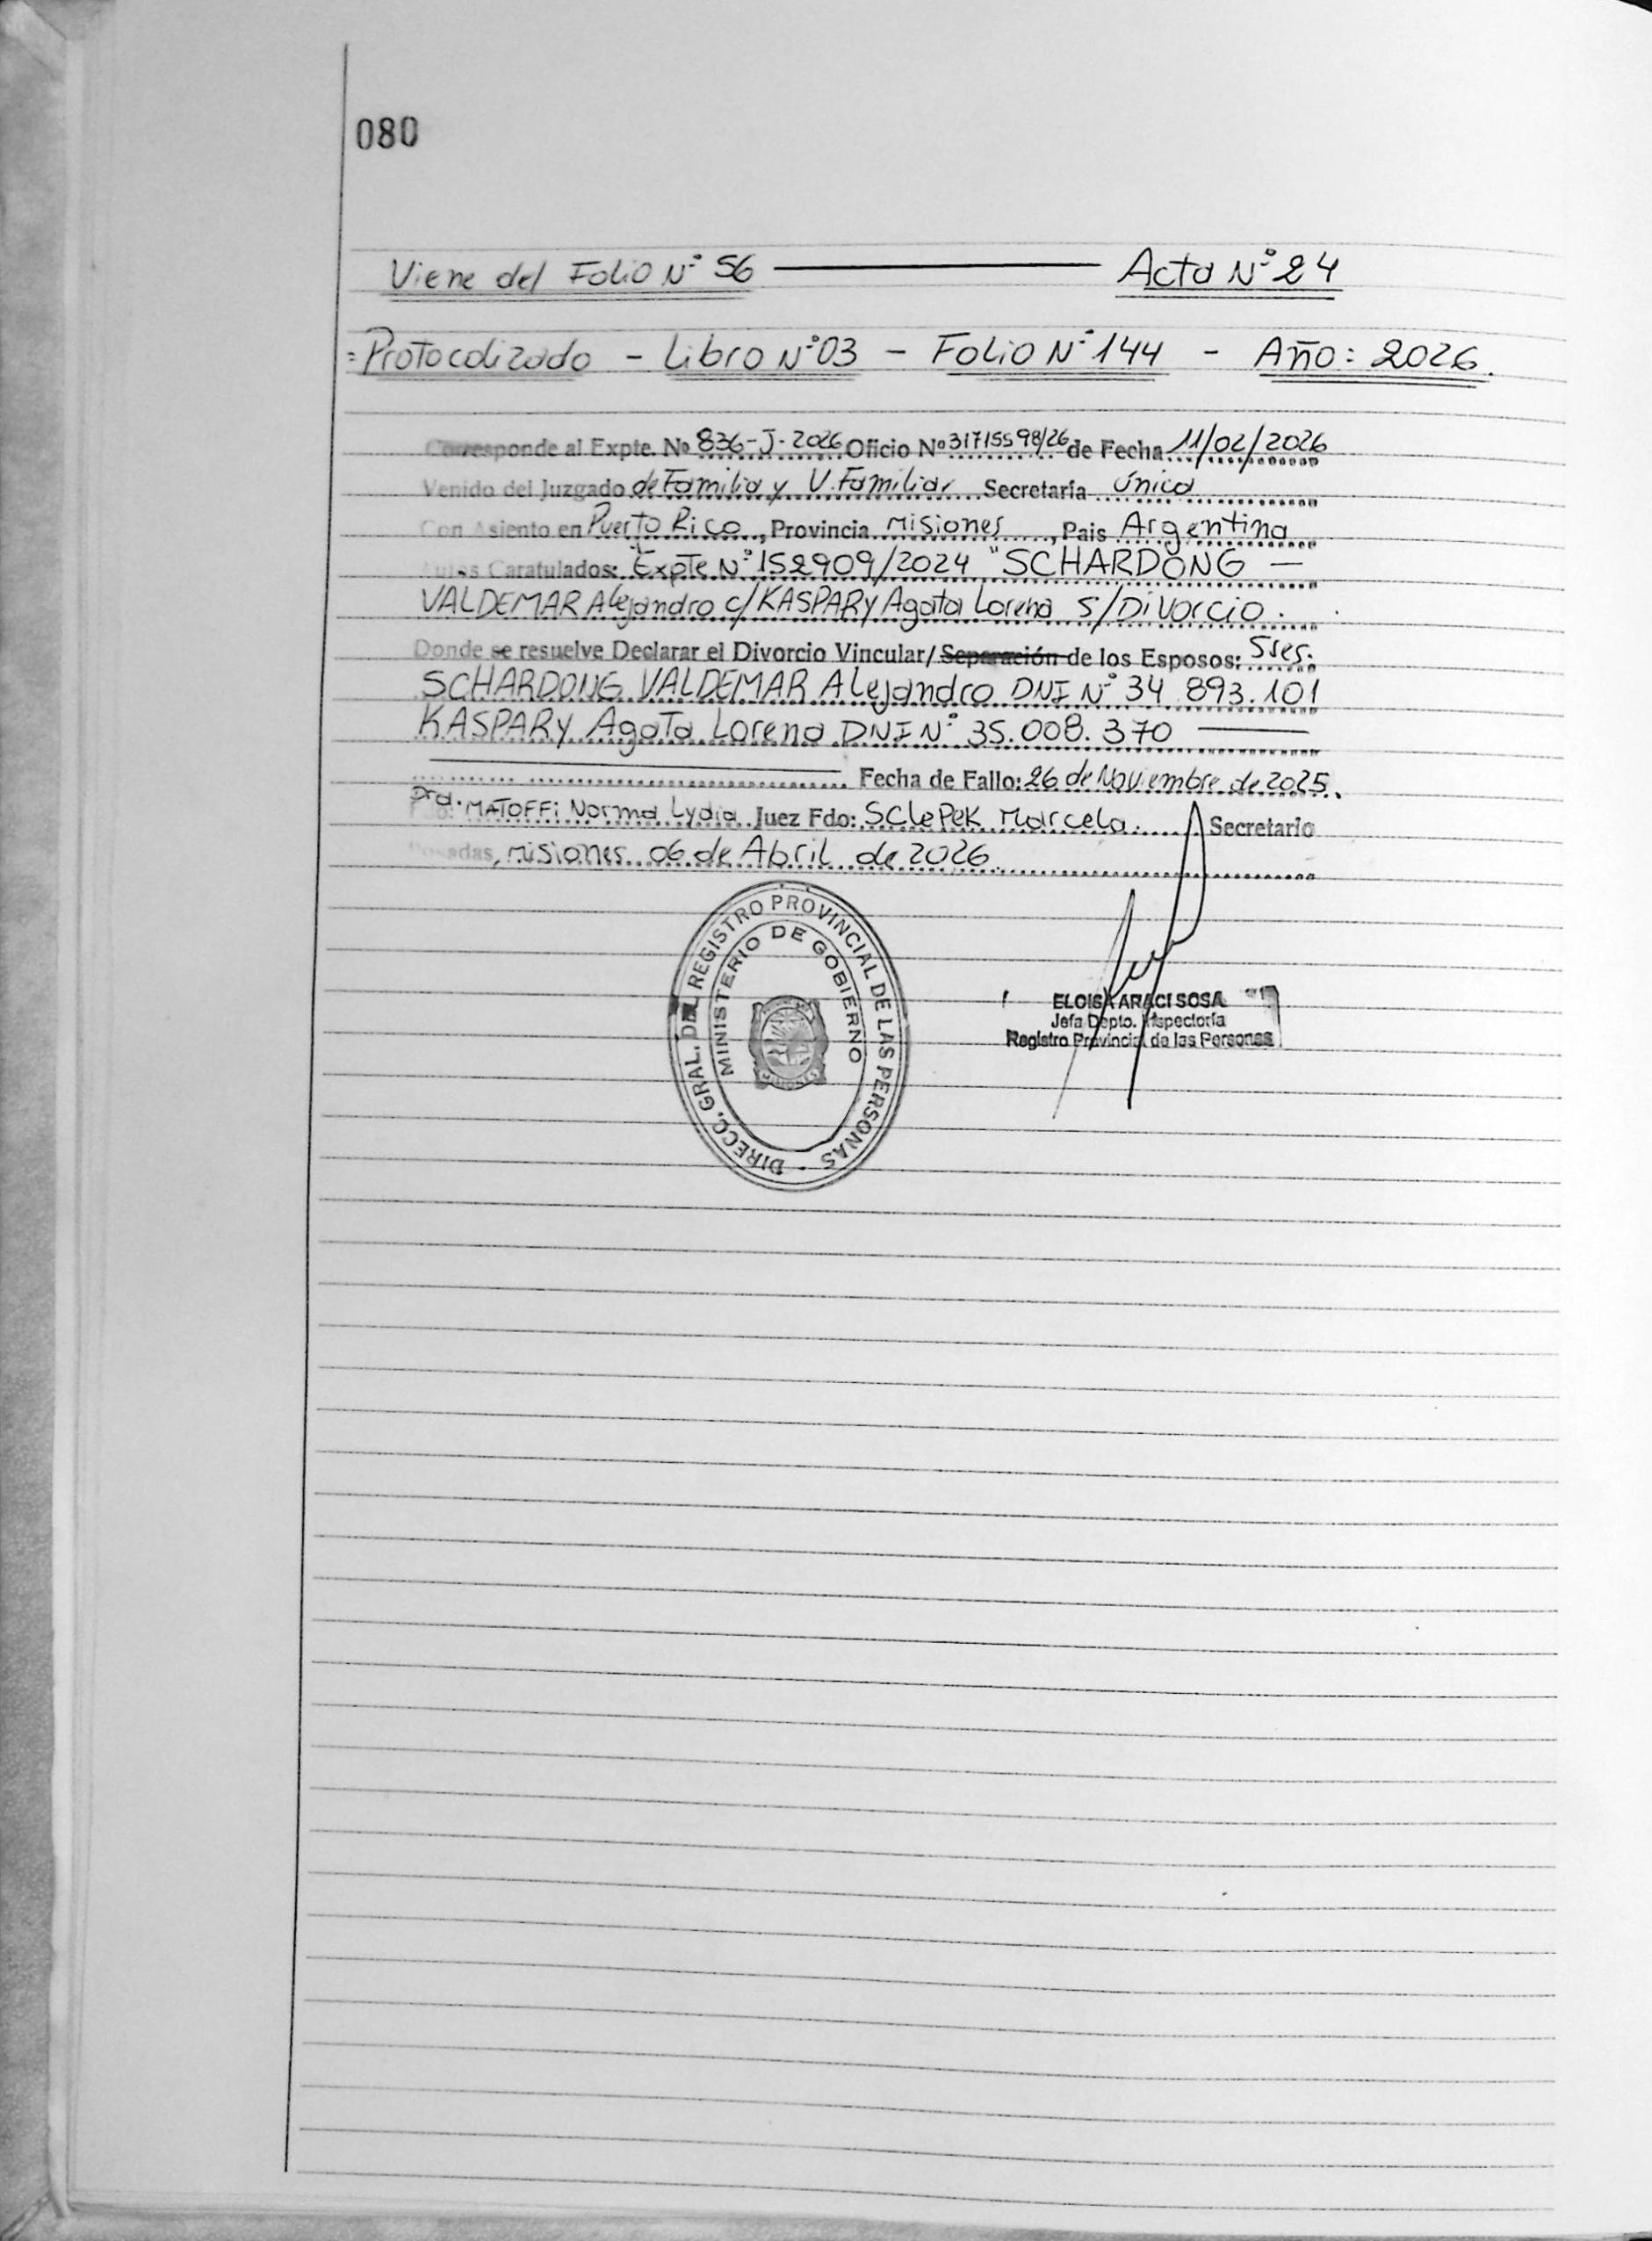 080
Viene del Folio N° 56 — Acta N° 24
=Protocolizado - Libro N° 03 - Folio N° 144 - Año: 2026.
Corresponde al Expte. Nº 836-J-2026 Oficio Nº 31715598/26 de Fecha 11/02/2026
Venido del Juzgado de Familia y V. Familiar Secretaría única
Con Asiento en Puerto Rico, Provincia Misiones, Pais Argentina
Autos Caratulados: ExpTe N° 152909/2024 "SCHARDONG —
VALDEMAR Alejandro c/ KASPARY Agata Lorena S/Divorcio.
Donde se resuelve Declarar el Divorcio Vincular/ Separación de los Esposos: Sres.
SCHARDONG VALDEMAR Alejandro DNI N° 34.893.101
KASPARY Agata Lorena DNI N° 35.008.370 —
Fecha de Fallo: 26 de Noviembre de 2025.
Dra. MATOFFi Norma Lydia Juez Fdo: SClePeK Marcela. Secretario
Posadas, Misiones 06 de Abril de 2026
DIRECC. GRAL. DEL REGISTRO PROVINCIAL DE LAS PERSONAS
MINISTERIO DE GOBIERNO
MISIONES
ELOISA ARACI SOSA
Jefa Depto. Inspectoría
Registro Provincial de las Personas